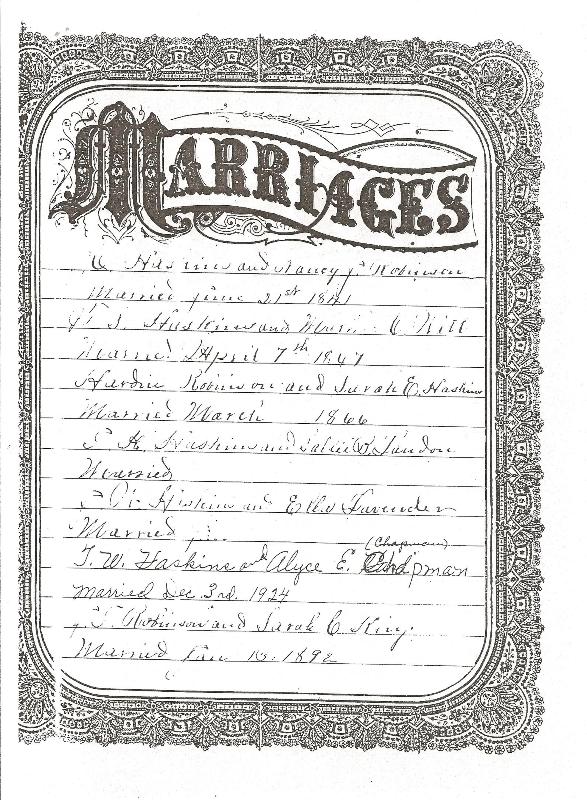 MARRIAGES
C Haskins and Nancy J. Robinson
Married June 21st 1841
J. T. Haskins and
Married April 7th 1867
Hardin Robinson and Sarah E. Haskins
Married March 1866
T H. Haskins and Sallie Landon
Married
Haskins and Ella Lavender
Married
(Chapman)
T. W. Haskins and Alyce E. Chapman
Married Dec. 3rd. 1924
J. T. Robinson and Sarah C. King.
Married 1892